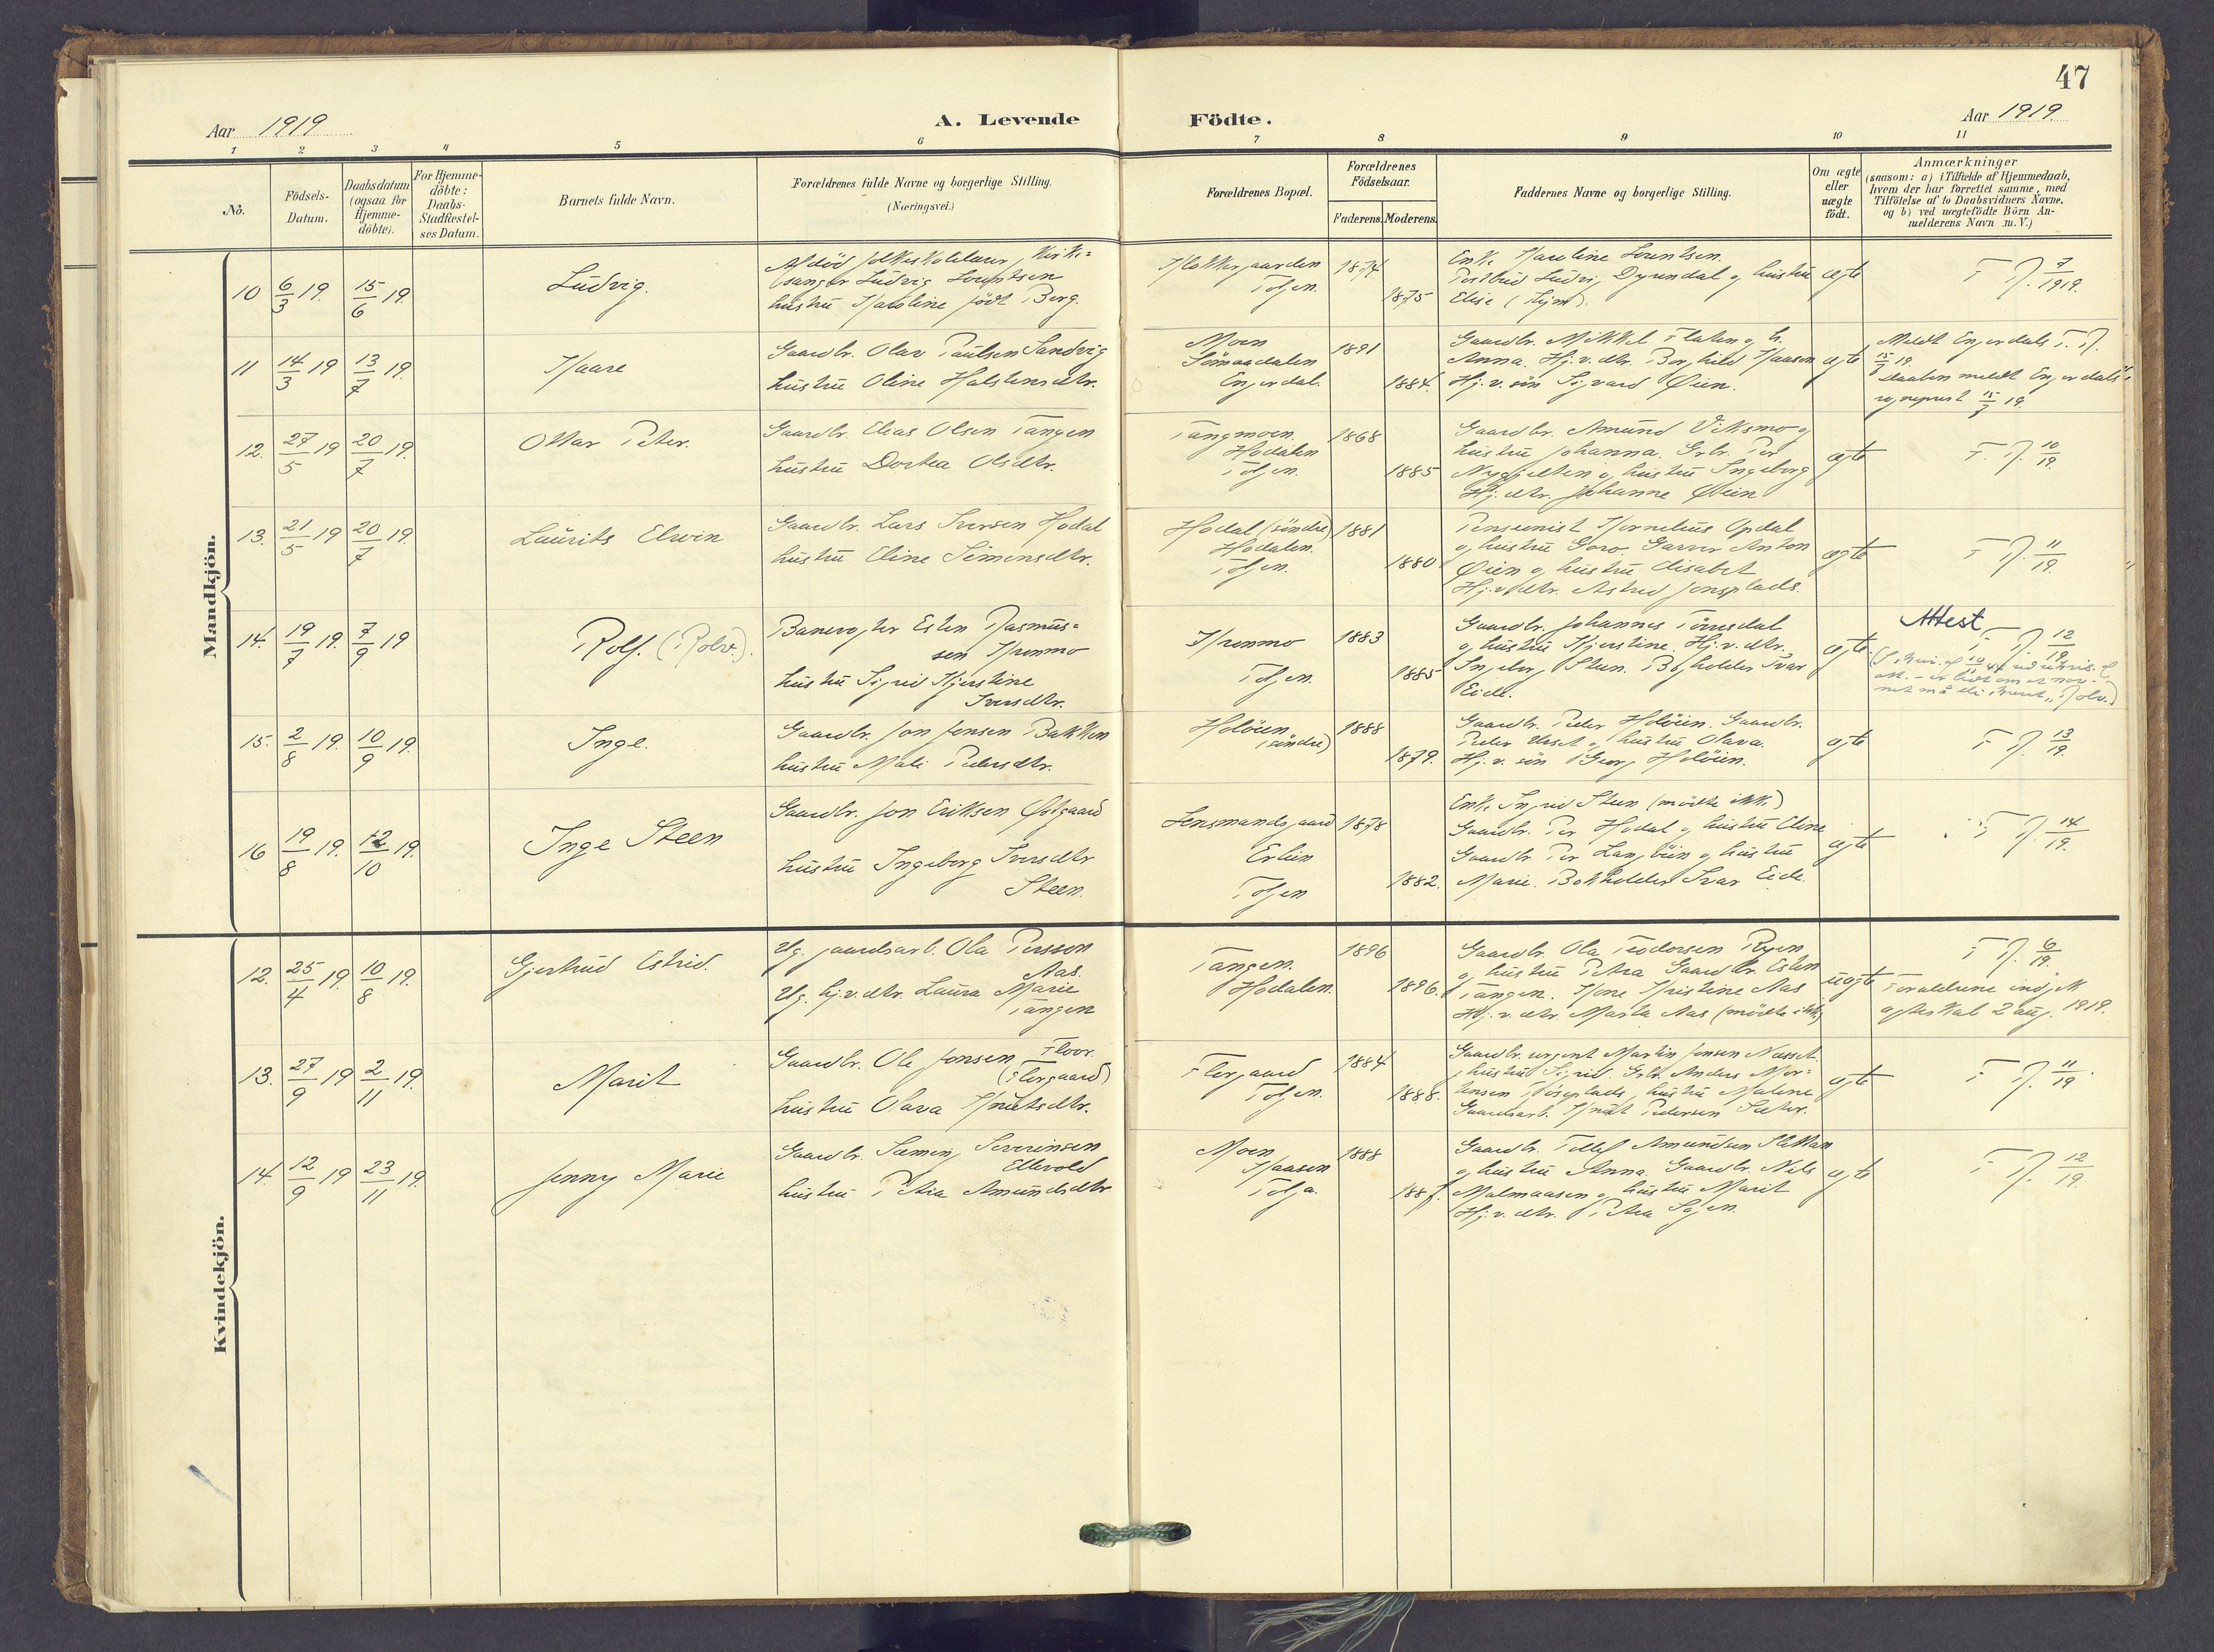 47
Aar 1919
A. Levende
Födte.
Aar 1919.
1 2 3 4 5 6 7 8 9 10 11
No.
Födsels-
Datum.
Daabsdatum
(ogsaa for
Hjemme-
döbte).
For Hjemme-
döbte:
Daabs-
Stadfæstel-
ses Datum.
Barnets fulde Navn.
Forældrenes fulde Navne og borgerlige Stilling.
(Næringsvei.)
Forældrenes Bopæl.
Forældrenes
Födselsaar.
Faderens. Moderens.
Faddernes Navne og borgerlige Stilling.
Om ægte
eller
uægte
födt.
Anmærkninger
(saasom: a) i Tilfælde af Hjemmedaab,
hvem der har forrettet samme, med
Tilföielse af to Daabsvidners Navne,
og b) ved uægtefödte Börn An-
melderens Navn m. V.)
Mandkjön.
10 6/3 19. 15/6 19.
Ludvig.
Afdöd folkeskolelærer, kirke=
sanger Ludvig Lorentsen
hustru Karoline født Berg.
Klokkergaarden
Tolgen.
1874
1875
Enke Karoline Lorentsen.
Postbud Ludvig Dyrendal og hustru
Elise
ægte
F. R. 9/1919.
11 14/3 19 13/7 19.
Kaare
Gaardbr. Olav Paulsen Sandvig
hustru Oline Halstensdtr.
Moen
Sömaadalen
Engerdal.
1891
1884.
Gaardbr. Mikkel Flaten og h.
Anna. Hj.v.dtr. Borghild Kaasen
Hj.v. sön Sigvard Øien.
ægte
Meldt Engerdals F.R.
15/7 19.
Daaben meldt Engerdals
sogneprest 15/7 19.
12. 27/5 19 20/7 19.
Ottar Peter.
Gaardbr. Elias Olsen Tangen
hustru Dortea Olsdtr.
Tangmoen.
Hodalen
Tolgen.
1868
1885
Gaardbr. Amund Viksmo og
hustru Johanna. Grbr. Per
hustru Ingeborg
Hj. dtr. Johanne Øien
ægte
F. R. 10/19.
13. 21/5 19 20/7 19.
Laurits Elvin
Gaardbr. Lars Iversen Hodal
hustru Eline Simensdtr.
Hodal (söndre)
Hodalen.
Tolgen.
1881
1880
Pensionist Kornelius Opdal
og hustru Goro. Garver Anton
Øien og hustru Elisabet
Hj.v.dtr. Astrid Jonsplads.
ægte
F R. 11/19.
14. 19/7 19. 7/9 19
Rolf. (Rolv.).
Banevogter Esten Rasmus=
sen Kronmo
hustru Sigrid Kjerstine
Iversdtr.
Kronmo
Tolgen.
1883
1885
Gaardbr. Johannes Tönsdal
og hustru Kjerstine. Hj.v.dtr.
Ingeborg Steen. Bogholder Ivar
Eide.
ægte.
Attest
F R 12/19.
15. 2/8 19. 10/9 19.
Inge.
Gaardbr. Jon Jonsen Bakken
hustru Mali Pedersdtr.
Holöien
(söndre)
1888
1879.
Gaardbr. Peder Holöien. Gaardbr.
Peder Urset og hustru Olava.
Hj.v. sön Georg Holöien.
ægte
F R. 13/19.
16 19/8 19. 12/10 19.
Inge Steen
Gaardbr. Jon Eriksen Østgaard
hustru Ingeborg Iversdtr
Steen.
Lensmandsgaard
Erlien
Tolgen
1878
1882.
Enke Ingrid Steen (mödte ikke)
Gaardbr. Per Hodal og hustru Eline
Gaardbr Per Langöien og hustru
Marie. Bokholder Ivar Eide.
ægte
F R. 14/19.
Kvindekjön.
12. 25/4 19. 10/8 19.
Gjertrud Estrid.
Ug. gaardsarb. Ola Persson
Aas.
Ug. hj.v.dtr. Laura Marie
Tangen
Tangen.
Hodalen.
1896
1896.
Gaardbr. Ola Pedersen Ryen
og hustru Petra Gaardbr. Esten
Tangen. Kone Kristine Aas
Hj.v.dtr. Marta Aas (mödte ikke)
uægte
F R. 6/19.
Forældrene indgik
egteskab 2 aug. 1919.
13. 27/9 19 2/11 19.
Marit
Gaardbr. Ole Jonsen Floor.
(Florgaard)
hustru Olava Knutsdtr.
Florgaard
Tolgen.
1884
1888.
Gaardbr. sergent Martin Jonsen Nesset
og hustru Sigrid Grbr. Anders Mor=
tensen hustru Malene
Gaardsarb. Knut Pedersen Sæter.
ægte
F R. 11/19.
14. 12/9 19 23/11 19.
Jenny Marie
Gaardbr. Sæming Severinsen
Ellevold
hustru Petra Amundsdtr
Moen
Kaasen
Tolga.
1888
1887.
Gaardbr. Tollef Amundsen Slettan
og hustru Anna. Gaardbr. Nils
Malmaasen og hustru Marit
Hj.v.dtr. Petra
ægte
F R. 12/19.